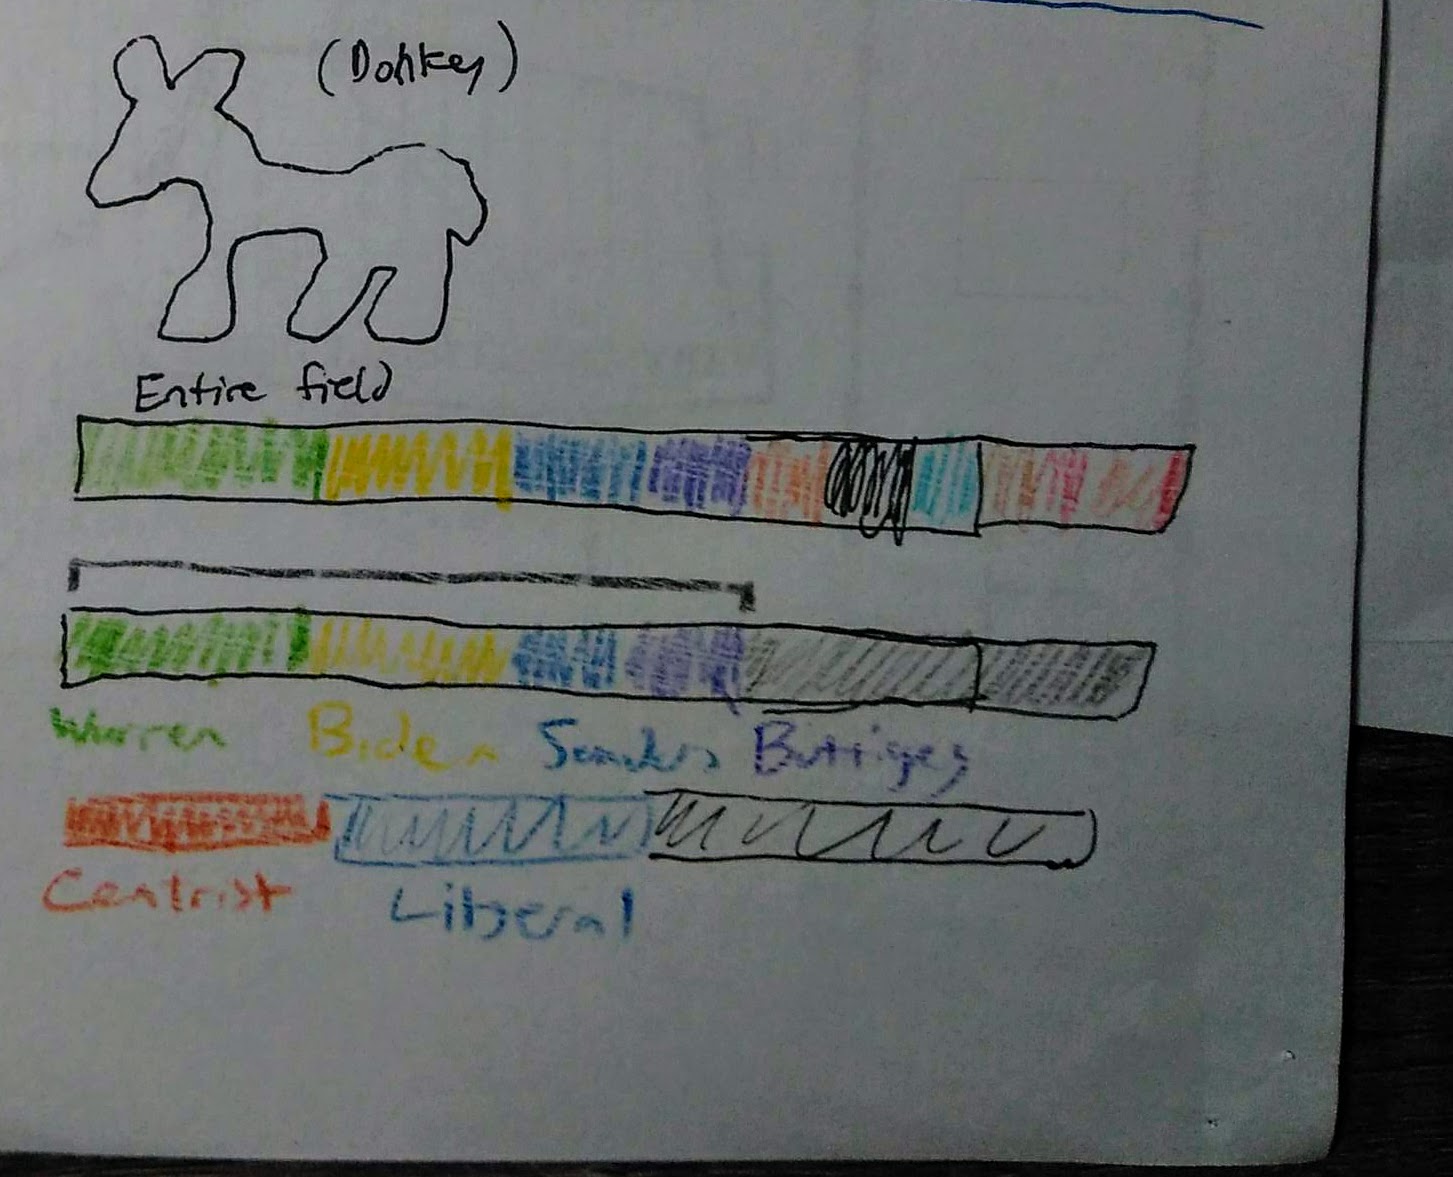 (Donkey)
Entire field
Warren Biden Sanders Buttigeg
Centrist
Liberal